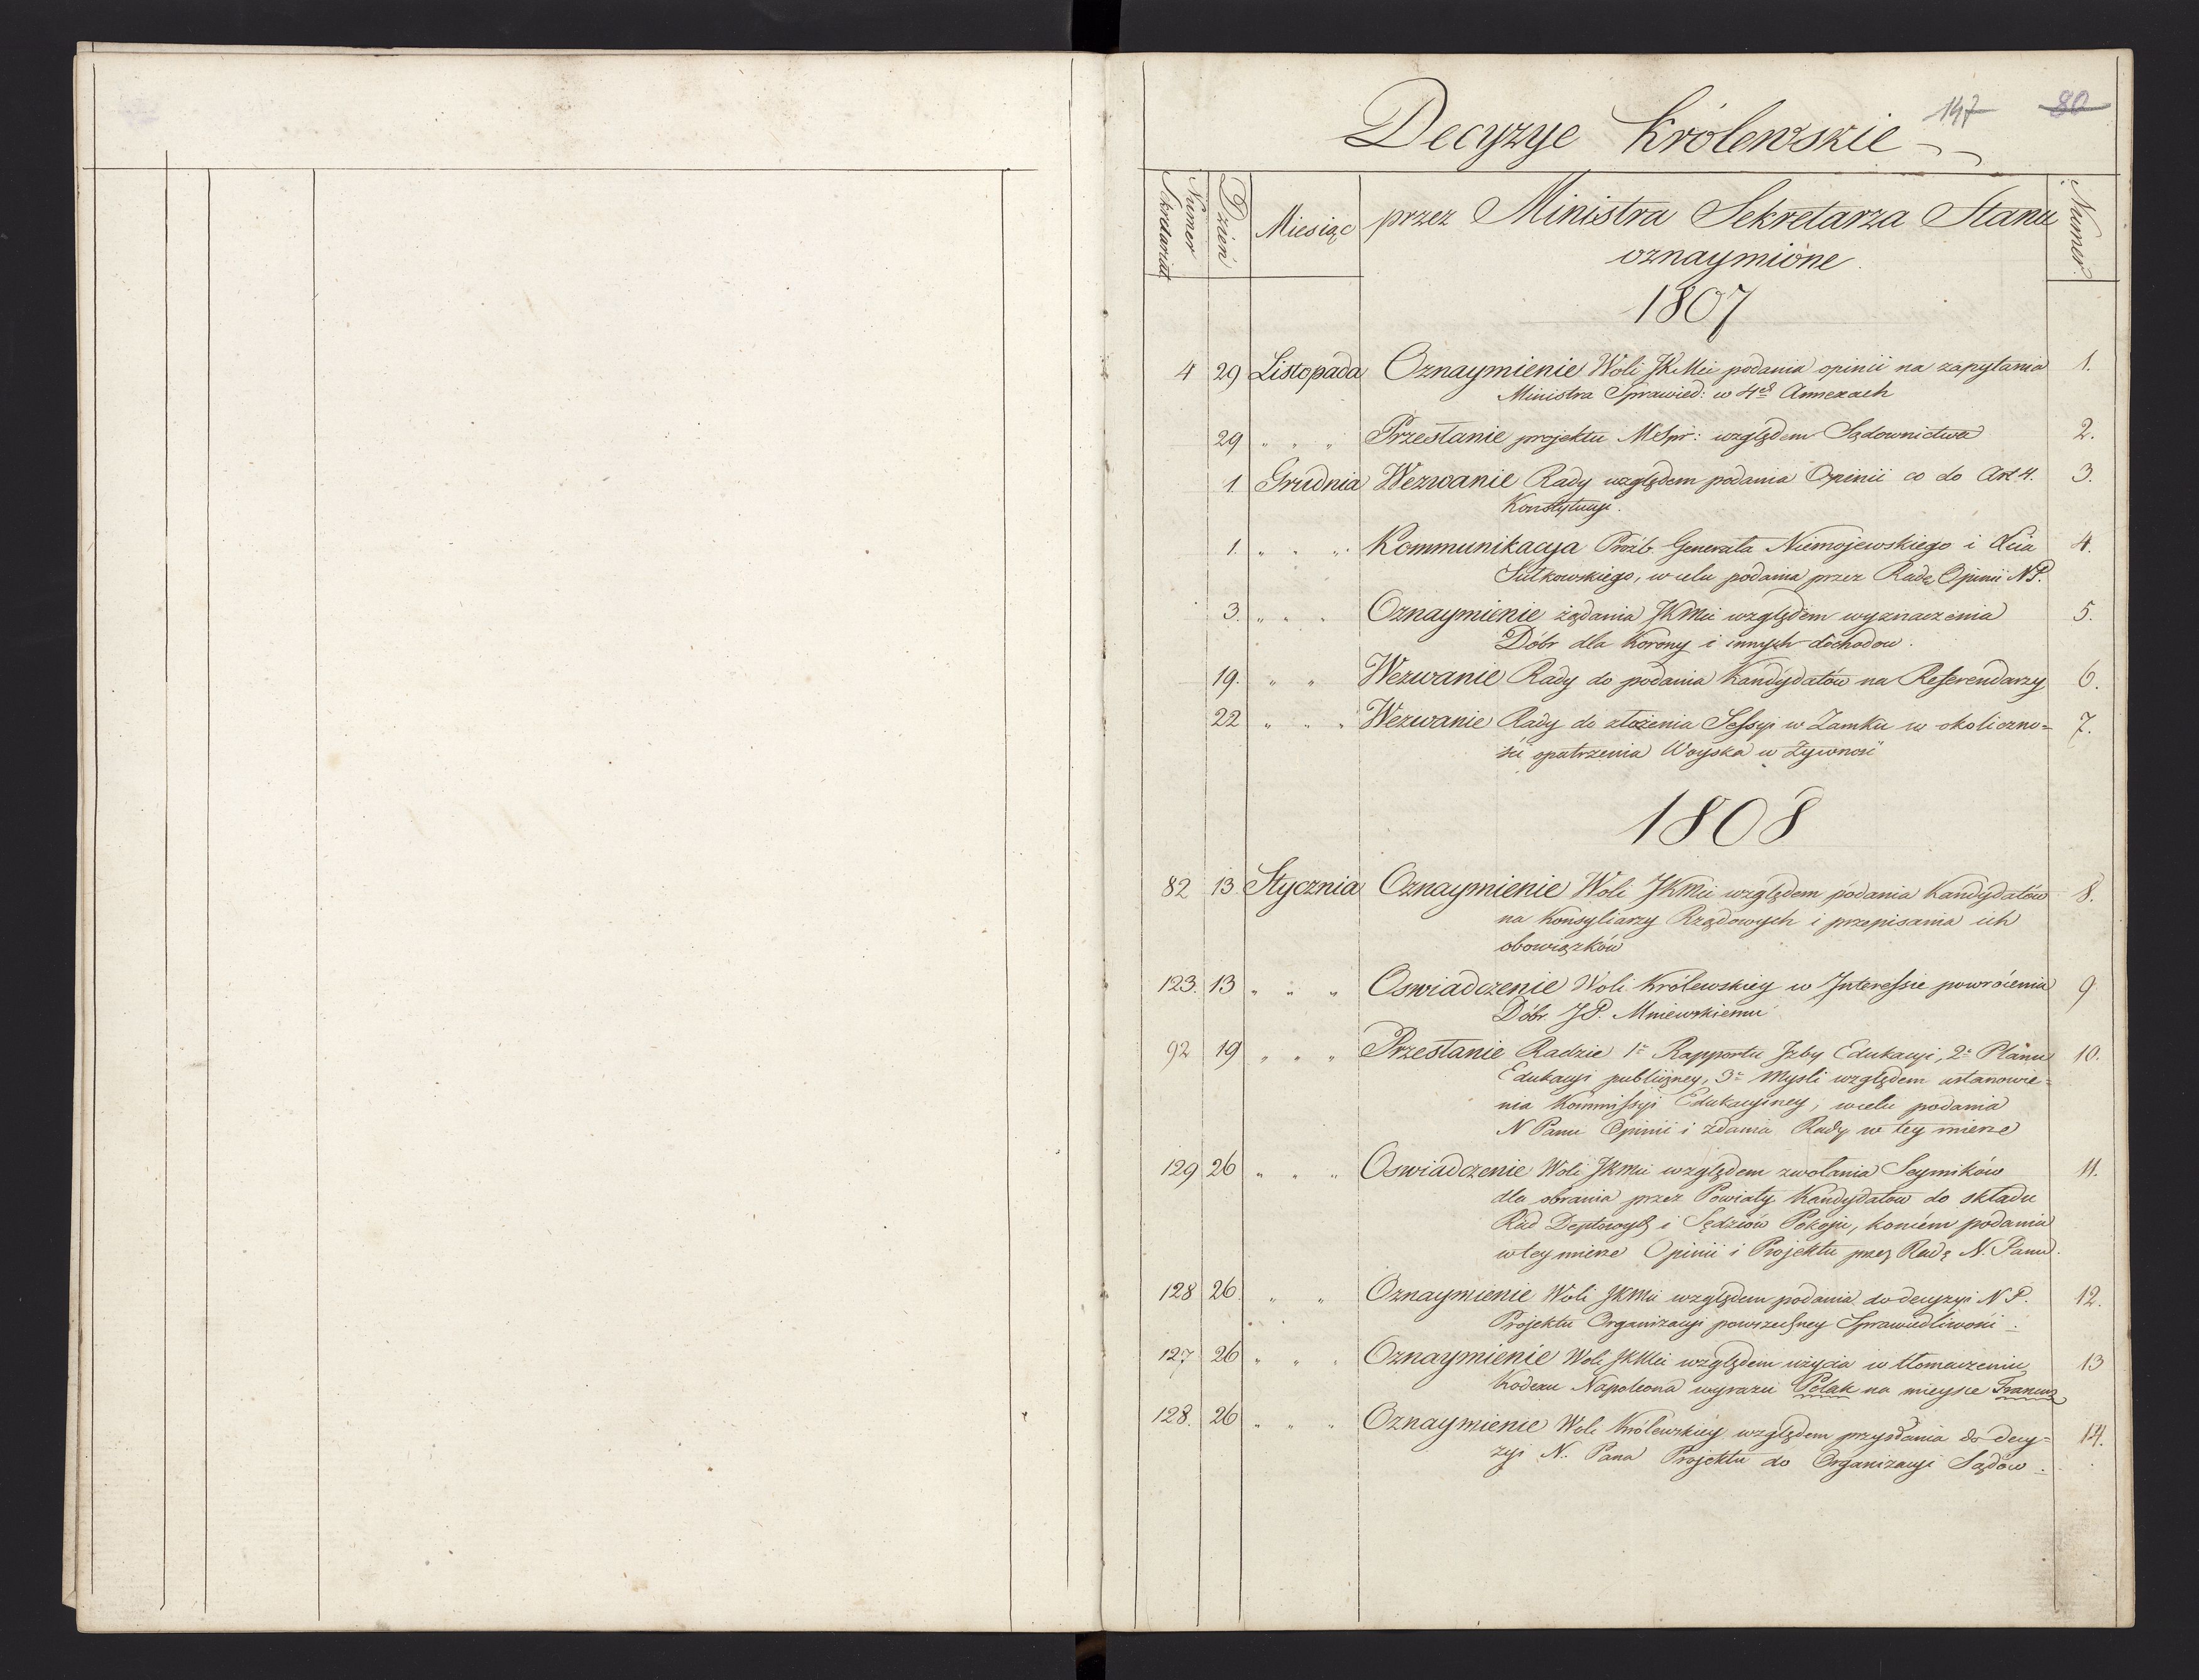 147 80
Decyzye Królewskie
Numer Sekretariat
Dzień
Miesiąc
przez Ministra Sekretarza Stanu
oznaymióne
Numer
1807
4 29 Listopada Oznaymienie Woli JKMci podania opinii na zapytania 1.
Ministra Sprawied: w 4ch Annexach
29 " " " Przesłanie projektu MSpr: względem Sądownictwa 2.
1. Grudnia Wezwanie Rady względem podania Opinii co do Art 4. 3.
Konstytucyi.
1. " " " Kommunikacya Proźb Generała Niemojewskiego i Xcia 4.
Sułkowskiego, w celu podania przez Radę Opinii NP.
3. " " " Oznaymienie żądania JKMci względem wyznaczenia 5.
Dóbr dla Korony i innych dochodow.
19. " " Wezwanie Rady do podania Kandydatów na Referendarzy 6.
22 " " " Wezwanie Rady do złożenia Sessyi w Zamku w okoliczno= 7.
ści opatrzenia Woyska w Żywność
1808
82 13 Stycznia Oznaymienie Woli JKMci względem podania Kandydatów 8.
na Konsyliarzy Rządowych i przepisania ich
obowiązków
123. 13 " " " Oswiadczenie Woli Królewskiey w Interessie powrócenia 9
Dóbr JP. Mniewskiemu
92 19 " " " Przesłanie Radzie 1º Rapportu Izby Edukacyi, 2º Planu 10.
Edukacyi publiczney, 3º Mysli względem ustanowie=
nia Kommissyi Edukacyiney, w celu podania
N Panu Opinii i zdania Rady w tey mierze
129 26 " " " Oswiadczenie Woli JKMci względem zwołania Seymików 11.
dla obrania przez Powiaty Kandydatow do składu
Rad Deptowych i Sędziów Pokoju, koniem podania
w tey mierze Opinii i Projektu przez Radę N. Panu.
128 26 " " Oznaymienie Woli JKMci względem podania do decyzyi N P. 12.
Projektu Organizacyi powszechney Sprawiedliwości.
127 26 " " " Oznaymienie Woli JKMci względem użycia w tłomaczeniu 13
Kodexu Napoleona wyrazu Polak na mieysce Francuz
128. 26 " " " Oznaymienie Woli Królewskiey względem przysłania do decy= 14.
zyi N. Pana Projektu do Organizacyi Sądow.